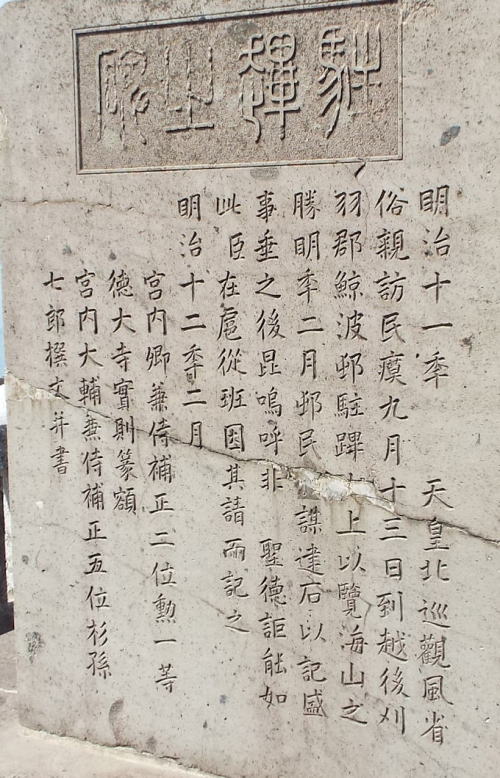 駐蹕山碑
明治十一季 天皇北巡觀風省
俗親訪民瘼九月十三日到越後刈
羽郡鯨波邨駐蹕 上以覽海山之
勝明年二月邨民 謀建石以記盛
事垂之後昆嗚呼非 聖德詎能如
此臣在扈從班因其請而記之
明治十二季二月
宮內卿兼侍補正二位勳一等
德大寺實則篆額
宮內大輔兼侍補正五位杉孫
七郎撰文并書